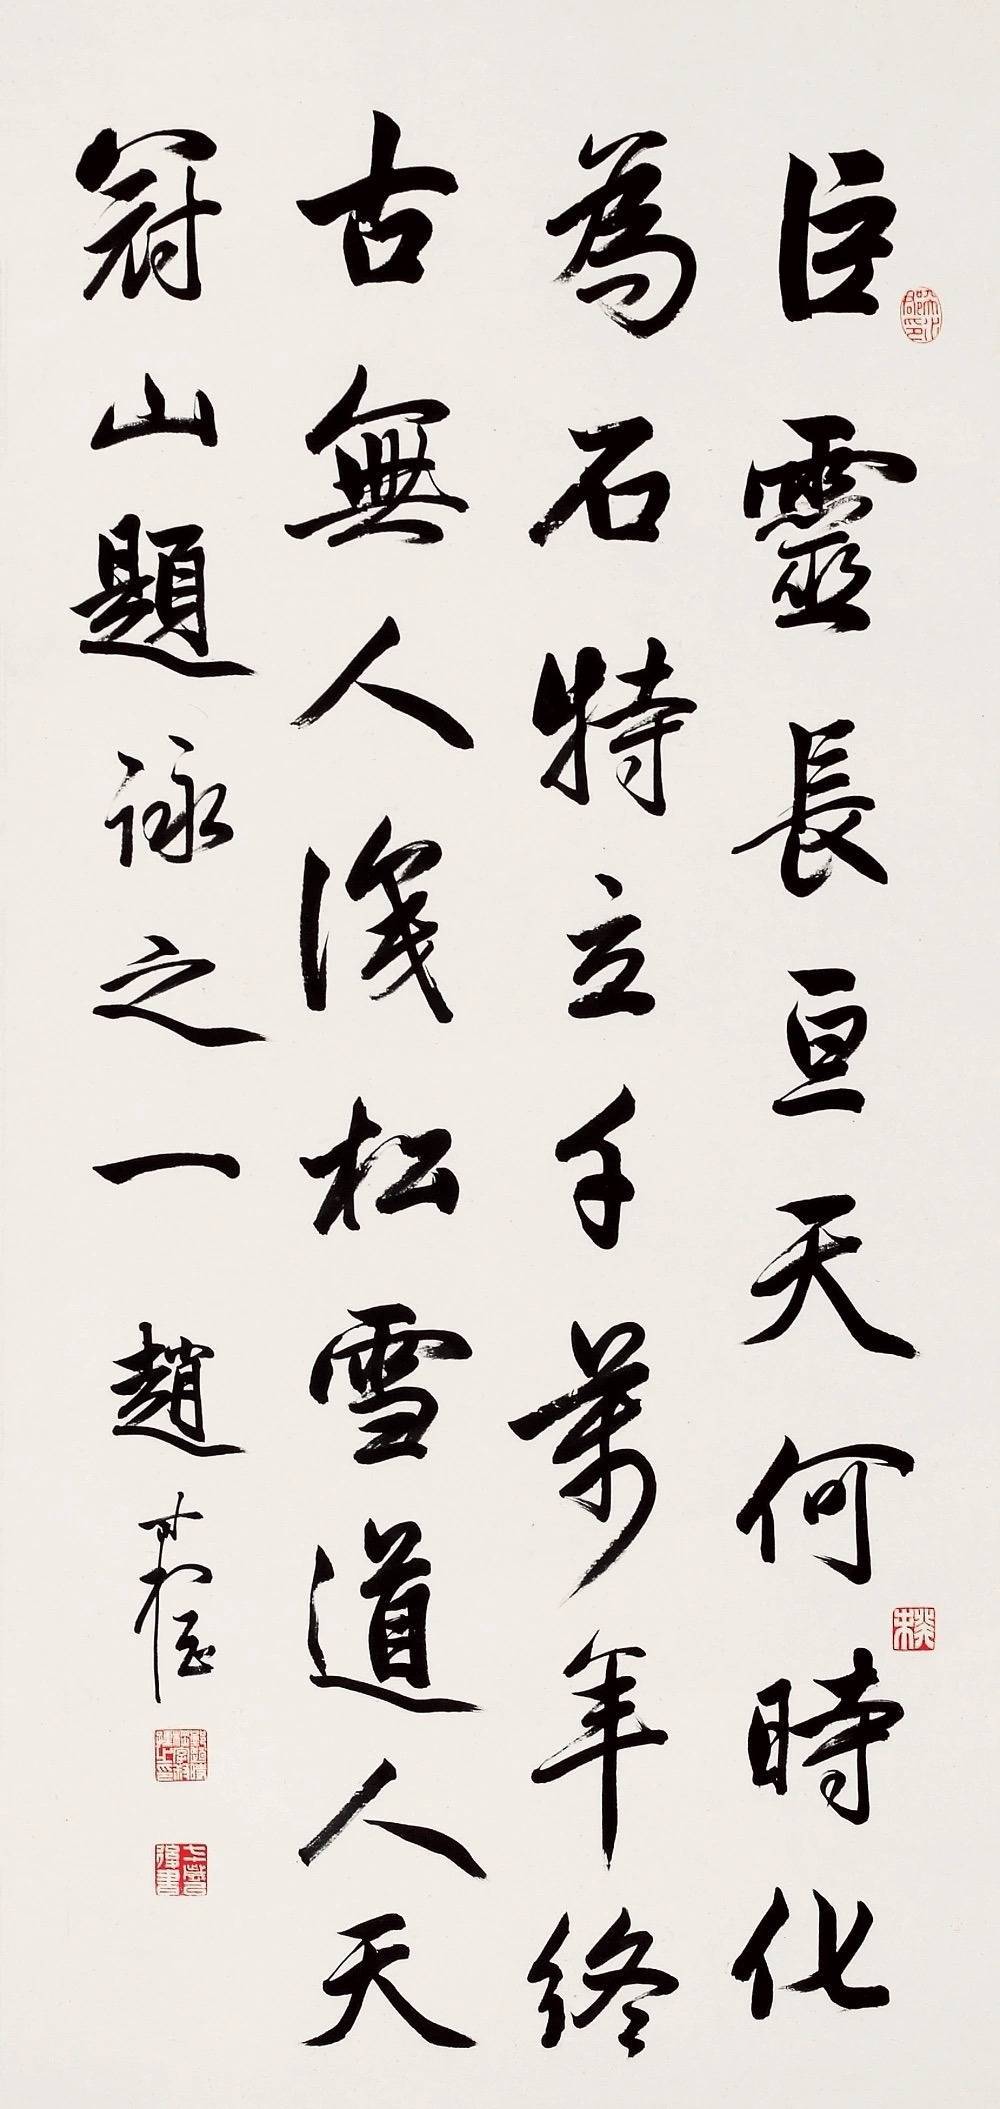 巨靈長亘天何時化
為石特立千萬年終
古無人識松雪道人天
冠山題詠之一趙